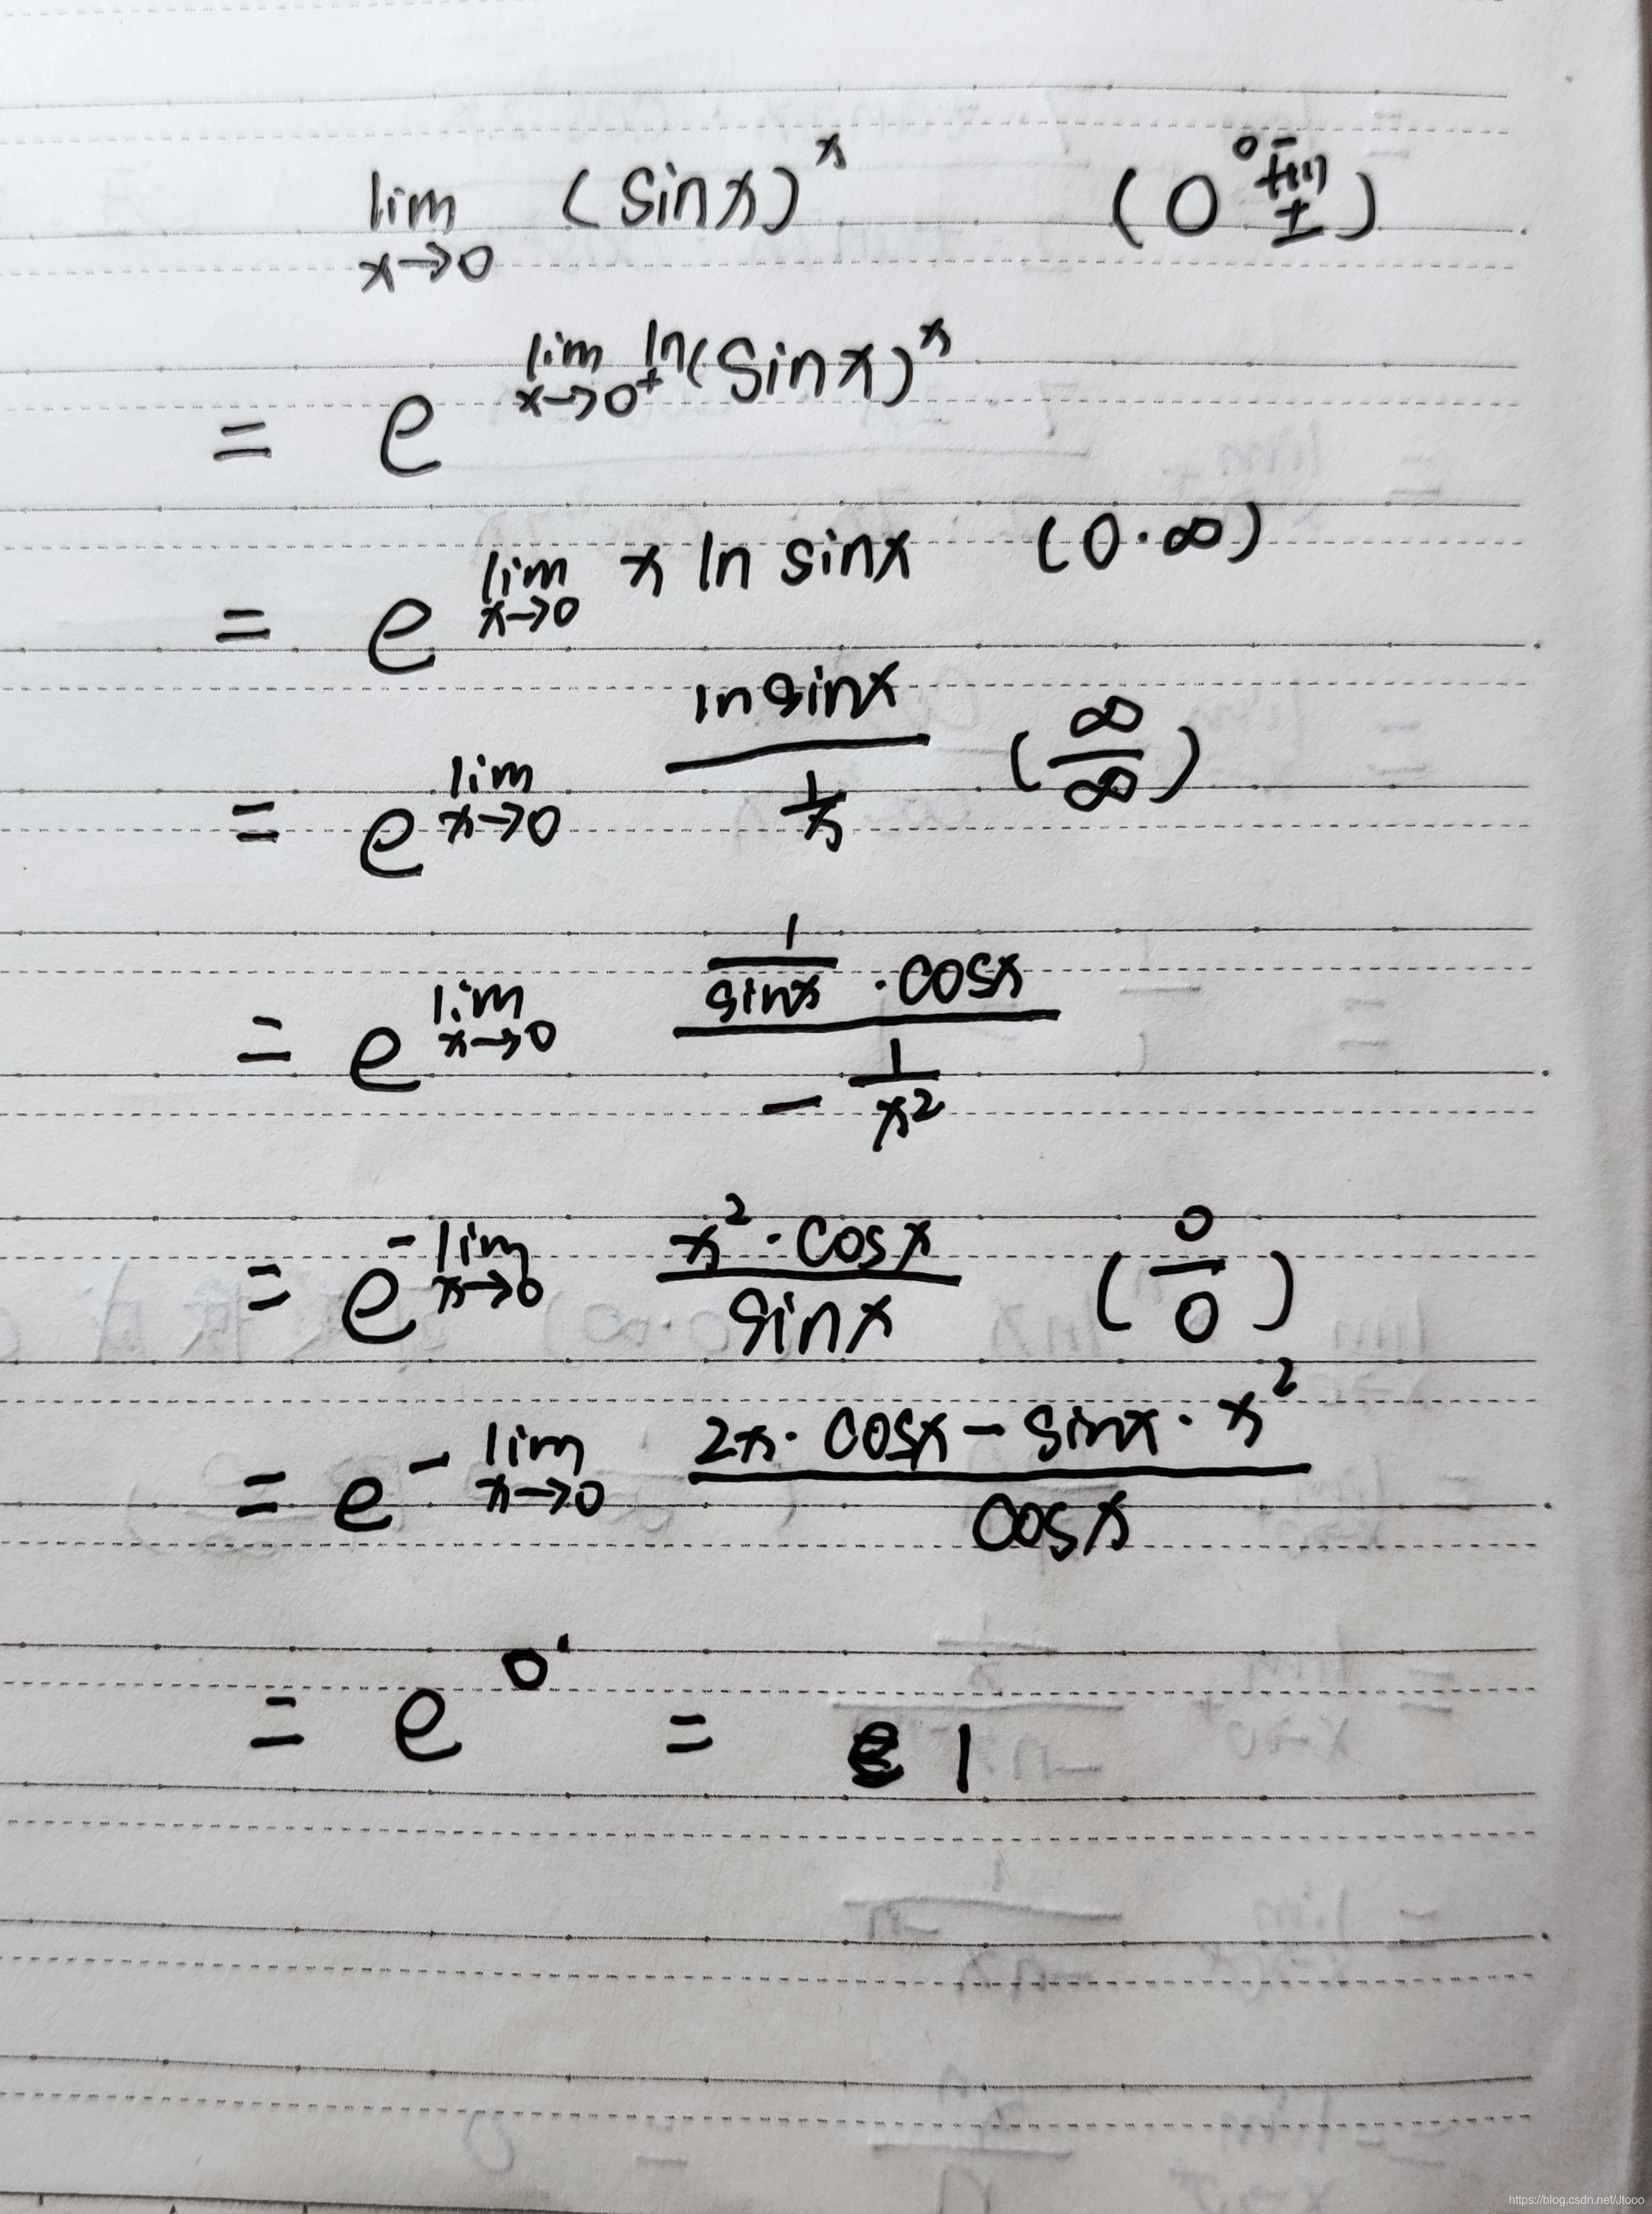 lim x→0 (sinx)^x (0^0 型)
= e^{lim x→0⁺ ln(sinx)^x}
= e^{lim x→0 x ln sinx} (0·∞)
= e^{lim x→0 \frac{ln sinx}{\frac{1}{x}}} (\frac{∞}{∞})
= e^{lim x→0 \frac{\frac{1}{sinx} · cosx}{-\frac{1}{x²}}}
= e^{-lim x→0 \frac{x² · cosx}{sinx}} (\frac{0}{0})
= e^{-lim x→0 \frac{2x · cosx - sinx · x²}{cosx}}
= e^0 = 1
https://blog.csdn.net/Jtooo